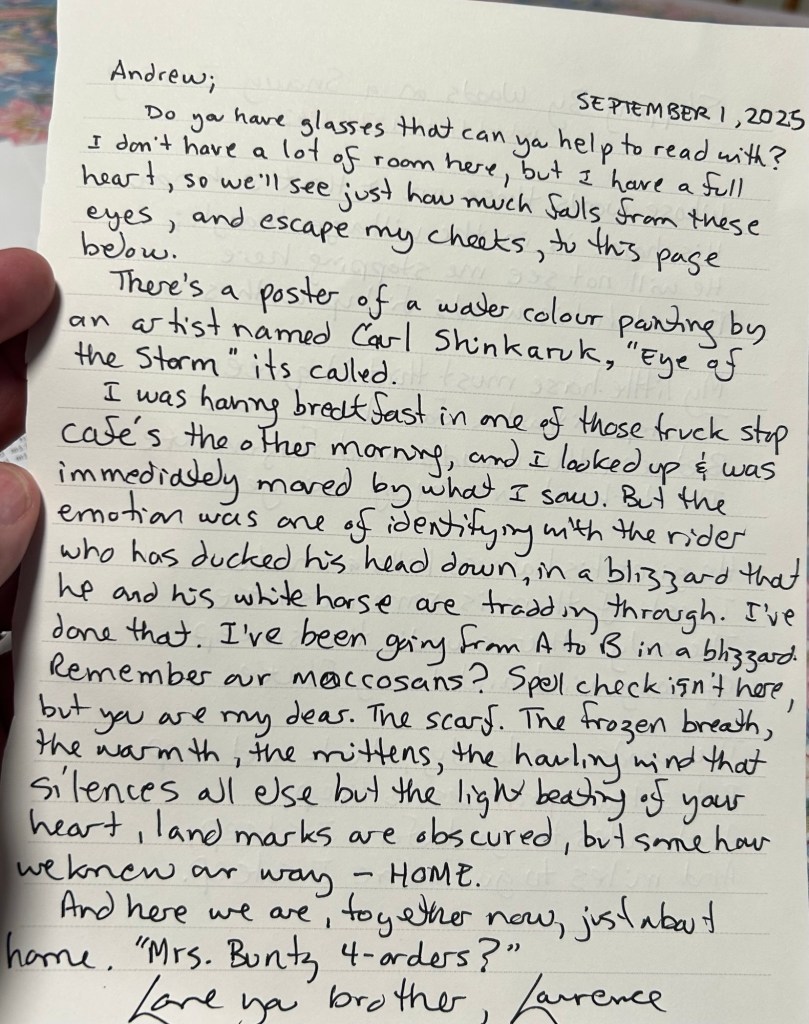 Andrew;
SEPTEMBER 1, 2025
Do ya have glasses that can ya help to read with?
I don't have a lot of room here, but I have a full
heart, so we'll see just how much falls from these
eyes, and escape my cheeks, to this page
below.
There's a poster of a water colour painting by
an artist named Carl Shinkaruk, "Eye of
the Storm" its called.
I was having breakfast in one of those truck stop
cafe's the other morning, and I looked up & was
immediately moved by what I saw. But the
emotion was one of identifying with the rider
who has ducked his head down, in a blizzard that
he and his white horse are tradding through. I've
done that. I've been going from A to B in a blizzard.
Remember our moccosans? Spell check isn't here,
but you are my dear. The scarf. The frozen breath,
the warmth, the mittens, the howling wind that
silences all else but the light beating of your
heart, land marks are obscured, but some how
we knew our way – HOME.
And here we are, together now, just about
home. "Mrs. Buntz 4-orders?"
Love ya brother, Lawrence